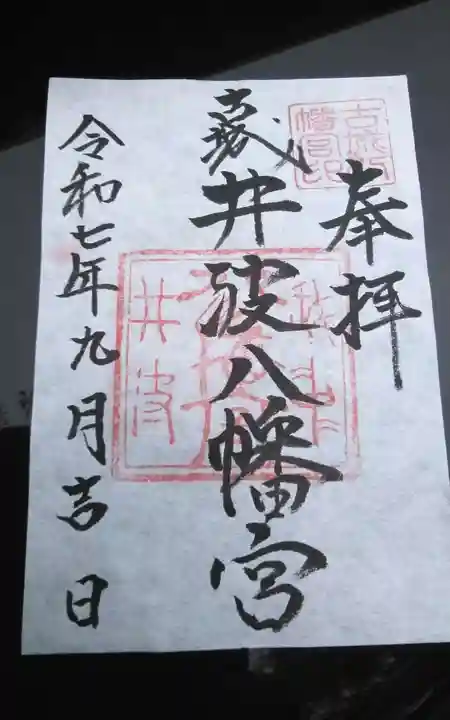 奉拝
井波八幡宮
令和七年九月吉日
井波